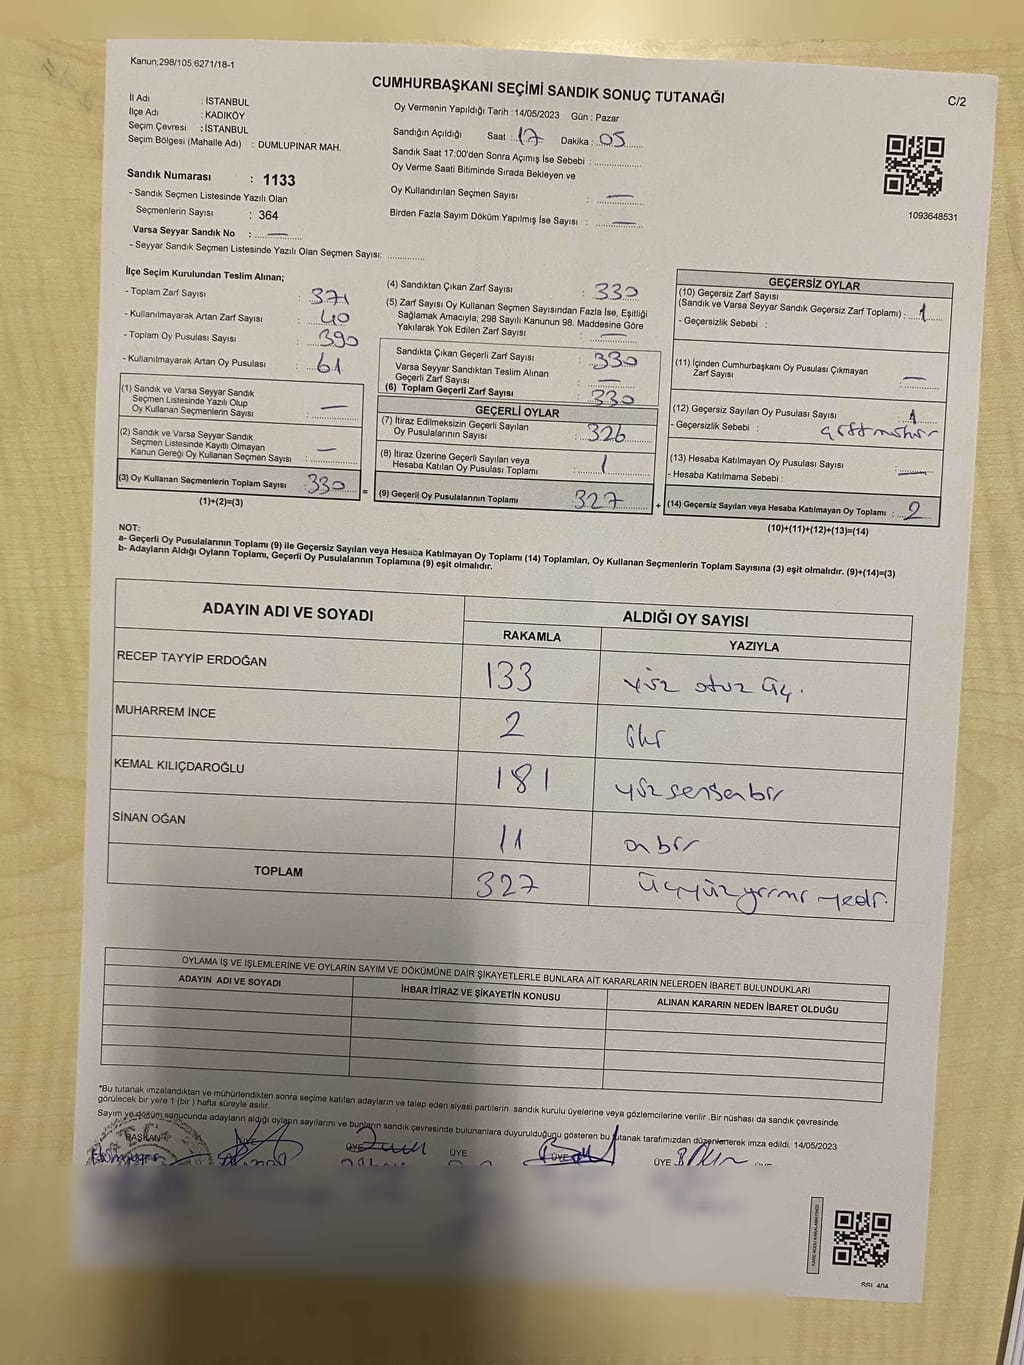 Kanun;298/105;6271/18-1
CUMHURBAŞKANI SEÇİMİ SANDIK SONUÇ TUTANAĞI
C/2
İl Adı : İSTANBUL
İlçe Adı : KADIKÖY
Seçim Çevresi : İSTANBUL
Seçim Bölgesi (Mahalle Adı) : DUMLUPINAR MAH.
Sandık Numarası : 1133
- Sandık Seçmen Listesinde Yazılı Olan
Seçmenlerin Sayısı : 364
Varsa Seyyar Sandık No : —
- Seyyar Sandık Seçmen Listesinde Yazılı Olan Seçmen Sayısı: ............
Oy Vermenin Yapıldığı Tarih :14/05/2023 Gün : Pazar
Sandığın Açıldığı Saat : 17 Dakika : 05
Sandık Saat 17:00'den Sonra Açımış İse Sebebi : ............
Oy Verme Saati Bitiminde Sırada Bekleyen ve
Oy Kullandırılan Seçmen Sayısı : —
Birden Fazla Sayım Döküm Yapılmış İse Sayısı : —
1093648531
İlçe Seçim Kurulundan Teslim Alınan;
- Toplam Zarf Sayısı : 371
- Kullanılmayarak Artan Zarf Sayısı : 40
- Toplam Oy Pusulası Sayısı : 390
- Kullanılmayarak Artan Oy Pusulası : 61
(1) Sandık ve Varsa Seyyar Sandık
Seçmen Listesinde Yazılı Olup
Oy Kullanan Seçmenlerin Sayısı : —
(2) Sandık ve Varsa Seyyar Sandık
Seçmen Listesinde Kayıtlı Olmayan
Kanun Gereği Oy Kullanan Seçmen Sayısı : —
(3) Oy Kullanan Seçmenlerin Toplam Sayısı : 330 =
(1)+(2)=(3)
(4) Sandıktan Çıkan Zarf Sayısı : 330
(5) Zarf Sayısı Oy Kullanan Seçmen Sayısından Fazla İse, Eşitliği
Sağlamak Amacıyla; 298 Sayılı Kanunun 98. Maddesine Göre
Yakılarak Yok Edilen Zarf Sayısı : —
Sandıkta Çıkan Geçerli Zarf Sayısı : 330
Varsa Seyyar Sandıktan Teslim Alınan
Geçerli Zarf Sayısı : —
(6) Toplam Geçerli Zarf Sayısı : 330
GEÇERLİ OYLAR
(7) İtiraz Edilmeksizin Geçerli Sayılan
Oy Pusulalarının Sayısı : 326
(8) İtiraz Üzerine Geçerli Sayılan veya
Hesaba Katılan Oy Pusulası Toplamı : 1
(9) Geçerli Oy Pusulalarının Toplamı : 327 +
GEÇERSİZ OYLAR
(10) Geçersiz Zarf Sayısı
(Sandık ve Varsa Seyyar Sandık Geçersiz Zarf Toplamı) : 1
- Geçersizlik Sebebi :
(11) İçinden Cumhurbaşkanı Oy Pusulası Çıkmayan
Zarf Sayısı : —
(12) Geçersiz Sayılan Oy Pusulası Sayısı : 1
- Geçersizlik Sebebi :
(13) Hesaba Katılmayan Oy Pusulası Sayısı : —
- Hesaba Katılmama Sebebi :
(14) Geçersiz Sayılan veya Hesaba Katılmayan Oy Toplamı : 2
(10)+(11)+(12)+(13)=(14)
NOT:
a- Geçerli Oy Pusulalarının Toplamı (9) ile Geçersiz Sayılan veya Hesaba Katılmayan Oy Toplamı (14) Toplamları, Oy Kullanan Seçmenlerin Toplam Sayısına (3) eşit olmalıdır. (9)+(14)=(3)
b- Adayların Aldığı Oyların Toplamı, Geçerli Oy Pusulalarının Toplamına (9) eşit olmalıdır.
ADAYIN ADI VE SOYADI
ALDIĞI OY SAYISI
RAKAMLA YAZIYLA
RECEP TAYYİP ERDOĞAN 133 yüz otuz üç.
MUHARREM İNCE 2 iki
KEMAL KILIÇDAROĞLU 181 yüzseksenbir
SİNAN OĞAN 11 onbir
TOPLAM 327 üçyüzyirmi yedi.
OYLAMA İŞ VE İŞLEMLERİNE VE OYLARIN SAYIM VE DÖKÜMÜNE DAİR ŞİKAYETLERLE BUNLARA AİT KARARLARIN NELERDEN İBARET BULUNDUKLARI
ADAYIN ADI VE SOYADI İHBAR İTİRAZ VE ŞİKAYETİN KONUSU ALINAN KARARIN NEDEN İBARET OLDUĞU
*Bu tutanak imzalandıktan ve mühürlendikten sonra seçime katılan adayların ve talep eden siyasi partilerin sandık kurulu üyelerine veya gözlemcilerine verilir .Bir nüshası da sandık çevresinde
görülecek bir yere 1 (bir ) hafta süreyle asılır.
Sayım ve döküm sonucunda adayların aldığı oyların sayılarını ve bunların sandık çevresinde bulunanlara duyurulduğunu gösteren bu tutanak tarafımızdan düzenlenerek imza edildi. 14/05/2023
BAŞKAN ÜYE ÜYE ÜYE ÜYE ÜYE